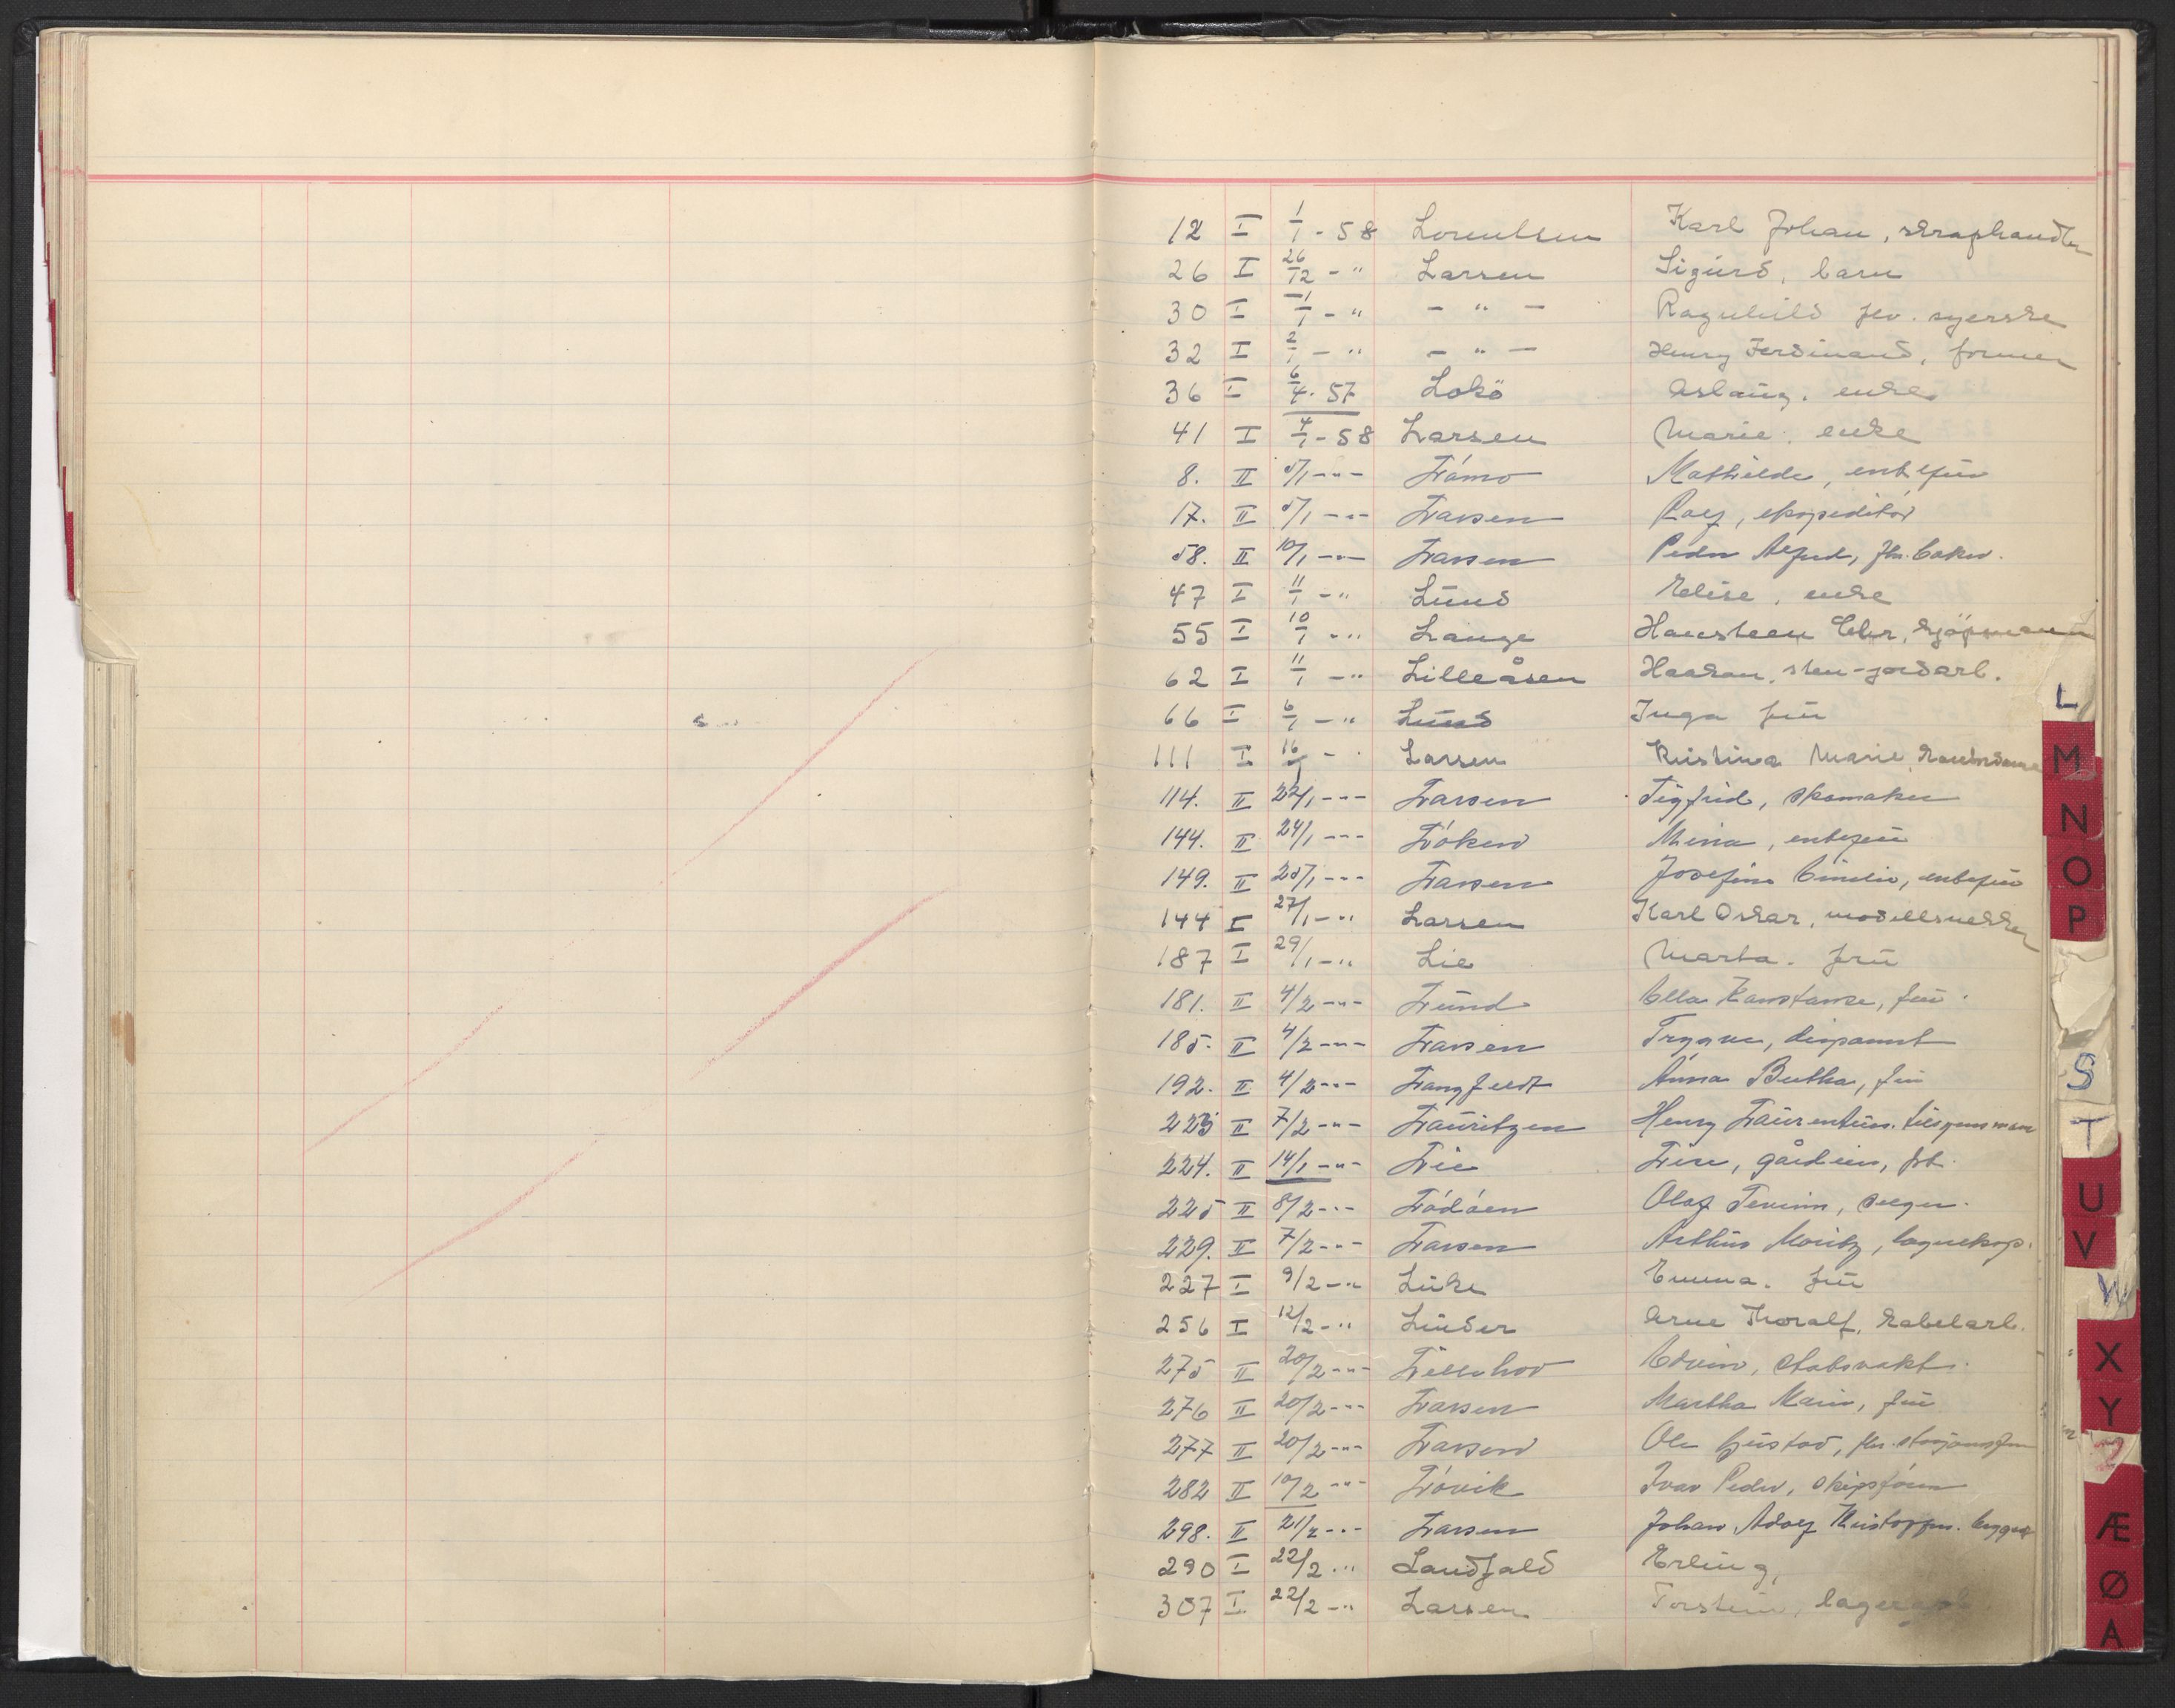 12 I 1/1 - 58 Lorentsen Karl Johan, skraphandler
26 I 26/12 - " Larsen Sigurd, barn
30 I 1/1 - " - " - Ragnhild fhv. syerske
32 I 2/1 - " - " - Henry Ferdinand, former
36 I 6/4 - 57 Lokö Aslaug, enke
41 I 4/1 - 58 Larsen Marie, enke
8. II 5/1 - " - Lámo Mathilde, enkefru
17. II 5/1 - " - Larsen Rolf, ekspeditör
58. II 10/1 - " - Larsen Peder Alfred, fhv. baker.
47 I 11/1 - " Lund Elise, enke
55 I 10/1 - " Lange Hansteen Chr. kjöpmann
62 I 11/1 - " Lilleåsen Haakon, sten-jordarb.
66 I 6/1 - " Lund Inga fru
111 I 16/1 - " Larsen Kristina Marie, kontordame
114. II 22/1 - " - Larsen Sigfrid, skomaker
144. II 24/1 - " - Löken Mina, enkefru
149. II 25/1 - " - Larsen Josefine Emilie, enkefru
144 I 27/1 - " Larsen Karl Oskar, modellsnekker
187 I 29/1 - " Lie Marta. fru
181. II 4/2 - " - Lund Ella Konstanse, fru.
185. II 4/2 - " - Larsen Trygve, disponent
192. II 4/2 - " - Langfeldt Anna Bertha, fru
223 II 7/2 - " - Lauritzen Henry Laurentius. tilsynsmann
224. II 14/1 - " - Lie Lise, gårdeier, frk.
225 II 8/2 - " - Lödöen Olaf, selger.
229. II 7/2 - " - Larsen Arthur Moritz, lagereksp.
227 I 9/2 - " Luke Emma. fru
256 I 12/2 - " Linder Arne Thoralf, kabelarb.
275 II 20/2 - " - Lillehov Edvin, stabsvakt.
276 II 20/2 - " - Larsen Martha Marie, fru
277 II 20/2 - " - Larsen Ole Gustav, fhv.
282 II 10/2 - " - Lövik Ivar Peder, skipsförer
298. II 21/2 - " - Larsen Johan Adolf Kristoffer.
290 I 22/2 - " Landfald Erling,
307 I 22/2 - " Larsen Torstein,
L
M
N
O
P
S
T
U
V
W
X
Y
Z
Æ
Ø
A